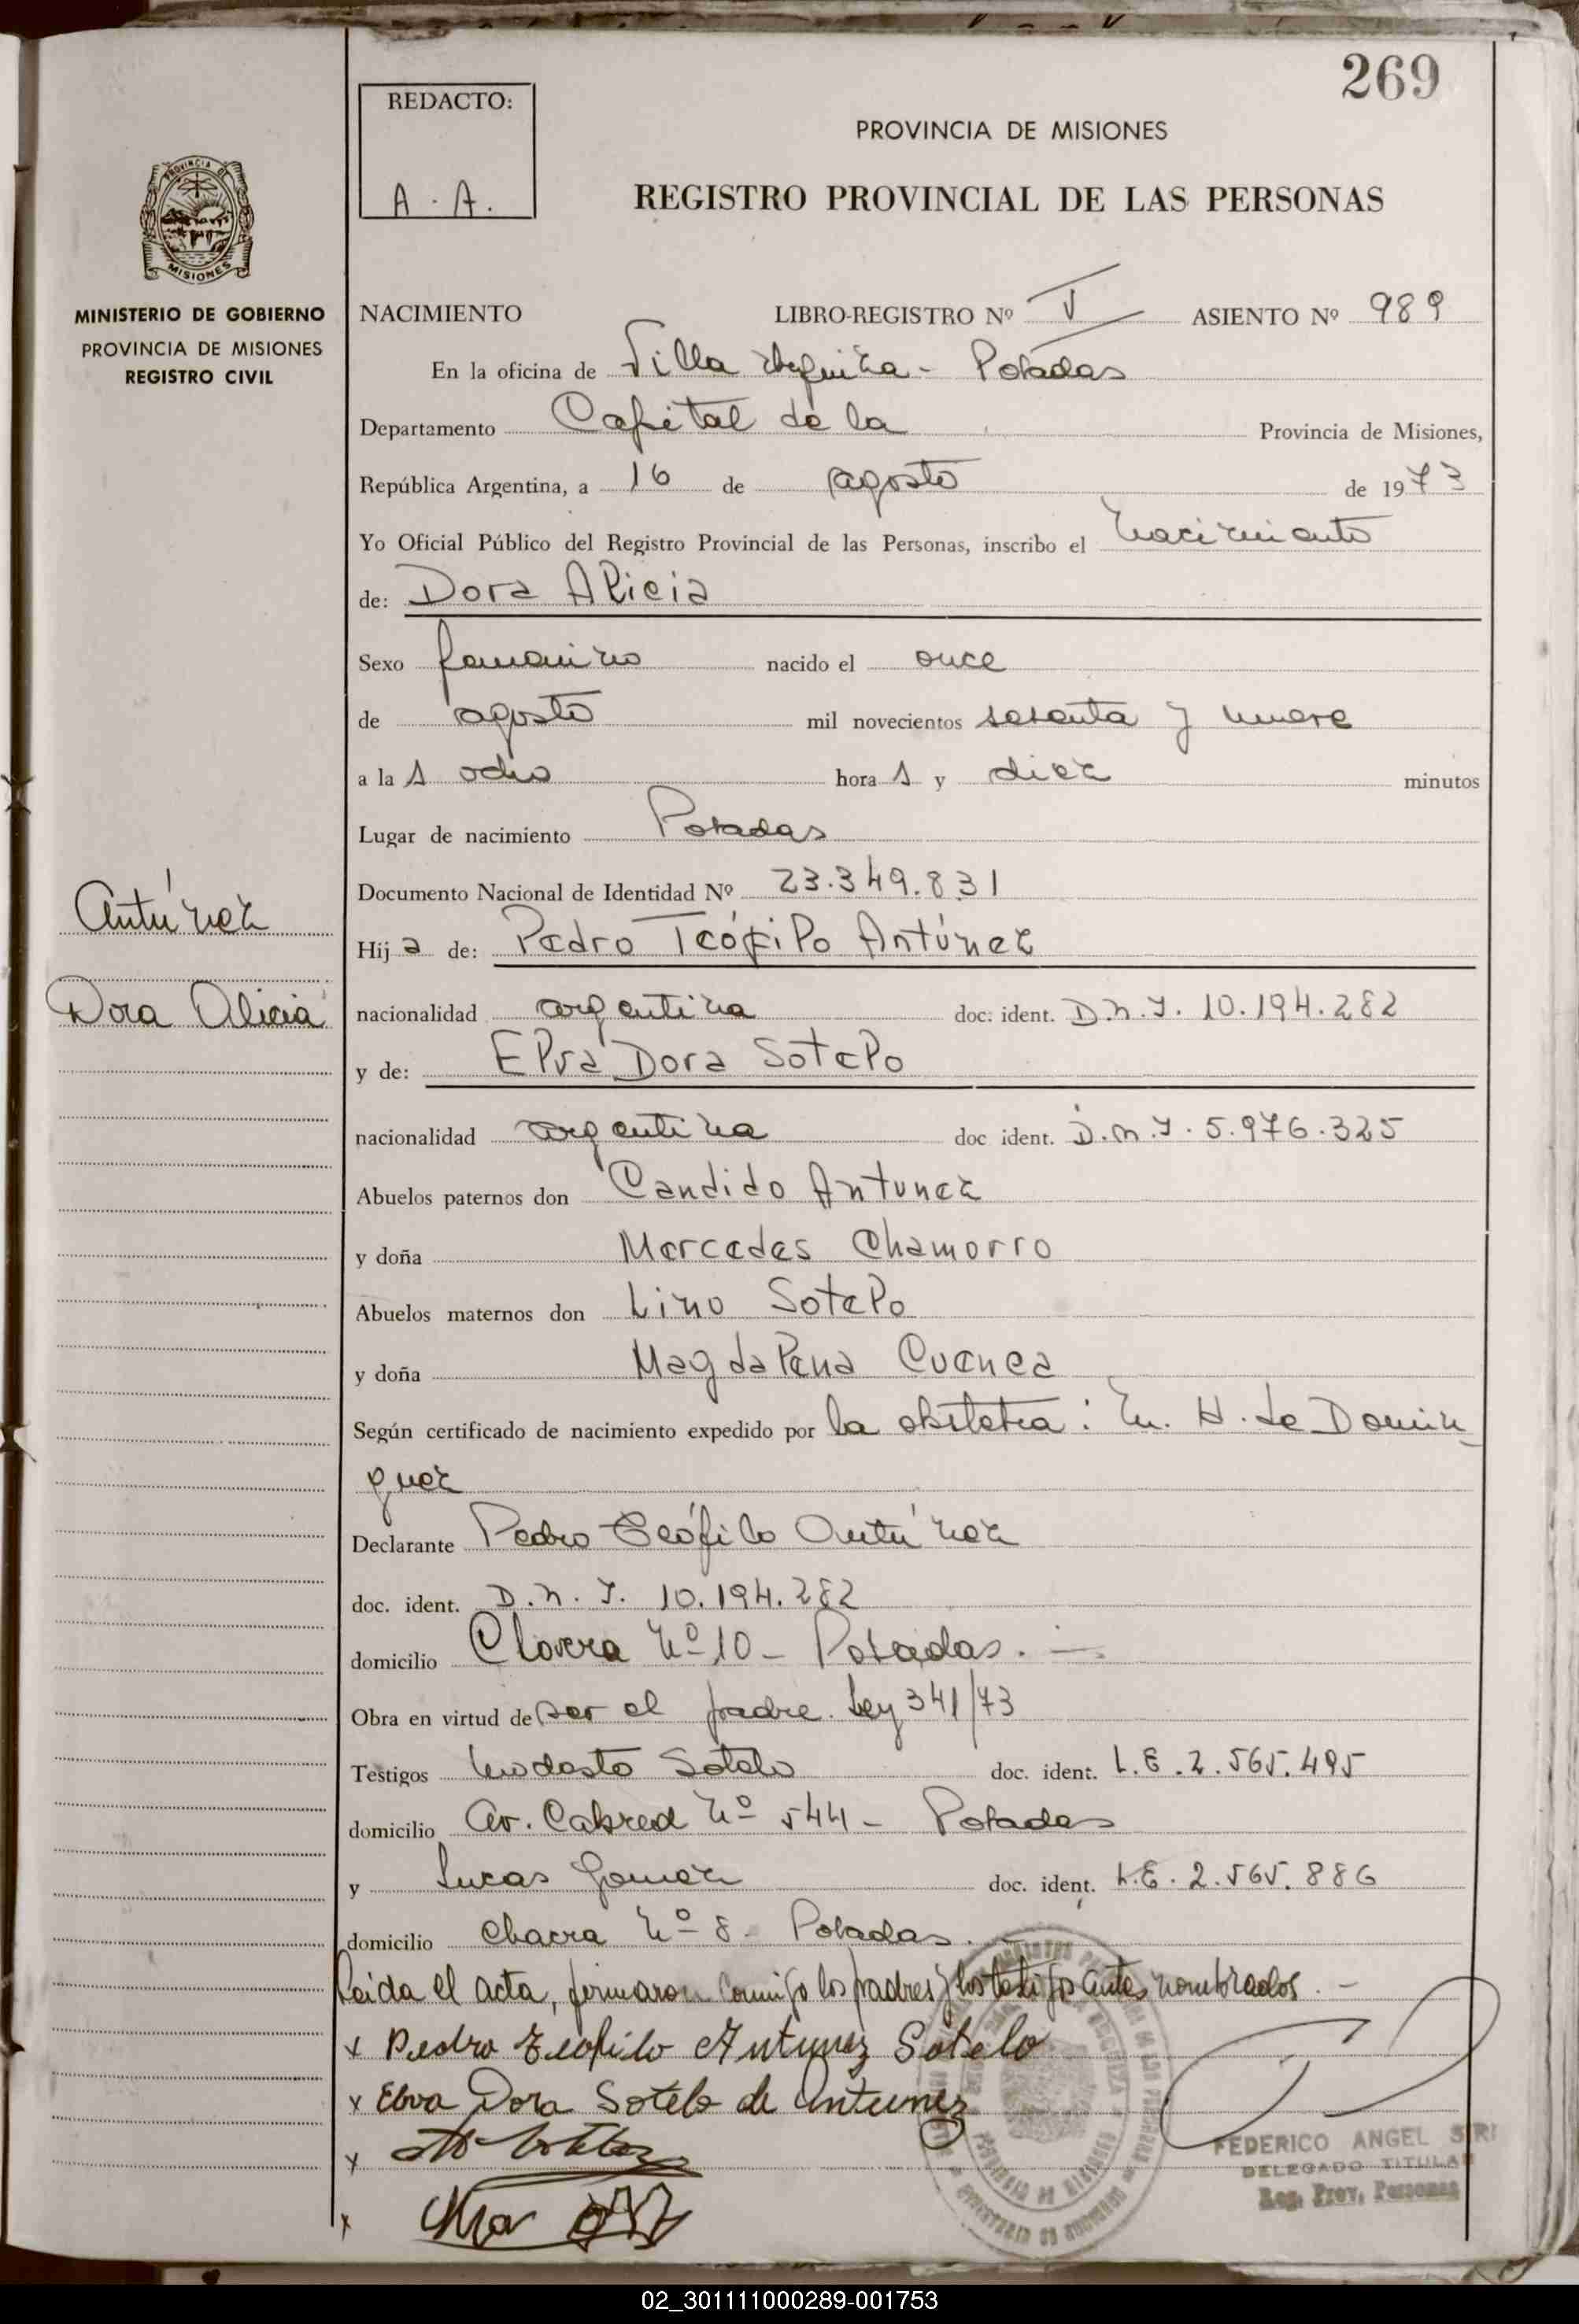 269
REDACTO:
A. A.
PROVINCIA DE MISIONES
REGISTRO PROVINCIAL DE LAS PERSONAS
PROVINCIA DE
MISIONES
MINISTERIO DE GOBIERNO
PROVINCIA DE MISIONES
REGISTRO CIVIL
NACIMIENTO LIBRO-REGISTRO Nº V ASIENTO Nº 989
En la oficina de Villa Urquiza - Posadas
Departamento Capital de la Provincia de Misiones,
República Argentina, a 16 de agosto de 1973
Yo Oficial Público del Registro Provincial de las Personas, inscribo el nacimiento
de: Dora Alicia
Sexo femenino nacido el once
de agosto mil novecientos sesenta y nueve
a las ocho horas y diez minutos
Lugar de nacimiento Posadas
Documento Nacional de Identidad Nº 23.349.831
Antúnez
Hija de: Pedro Teófilo Antúnez
Dora Alicia
nacionalidad argentina doc. ident. D.N.I. 10.194.282
y de: Elva Dora Sotelo
nacionalidad argentina doc ident. D.N.I. 5.976.325
Abuelos paternos don Candido Antunez
y doña Mercedes Chamorro
Abuelos maternos don Lino Sotelo
y doña Magdalena Cuenca
Según certificado de nacimiento expedido por la obstetra: M. H. de Domín
guez
Declarante Pedro Teófilo Antúnez
doc. ident. D.N.I. 10.194.282
domicilio Nº 10 - Posadas. -
Obra en virtud de ser el padre. Ley 341/73
Testigos Modesto Sotelo doc. ident. L.E. 2.565.495
domicilio Av. Cabred Nº 544 - Posadas
y Lucas Gomez doc. ident. L.E. 2.565.886
domicilio Chacra Nº 8 - Posadas. -
Leida el acta, firmaron conmigo los padres y los testigos antes nombrados. -
x Pedro Teofilo Antunez Sotelo
x Elva Dora Sotelo de Antunez
x
x
FEDERICO ANGEL SIRI
DELEGADO TITULAR
Reg. Prov. Personas
02_301111000289-001753